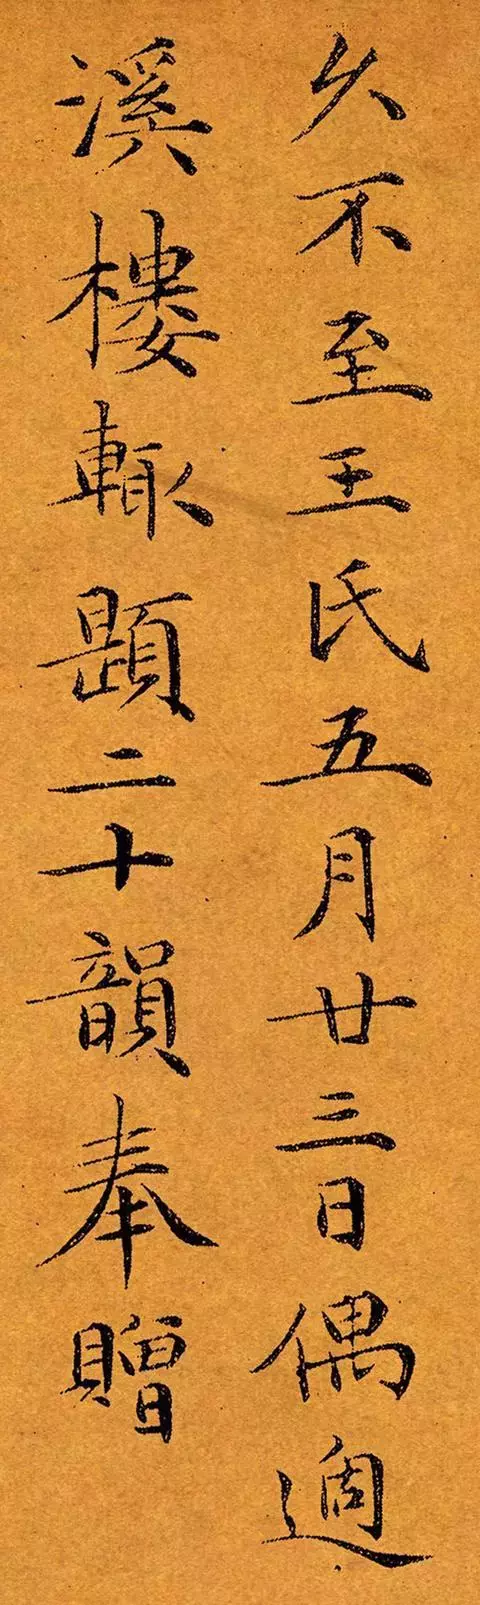 久不至王氏五月廿三日偶過
溪樓輒題二十韻奉贈